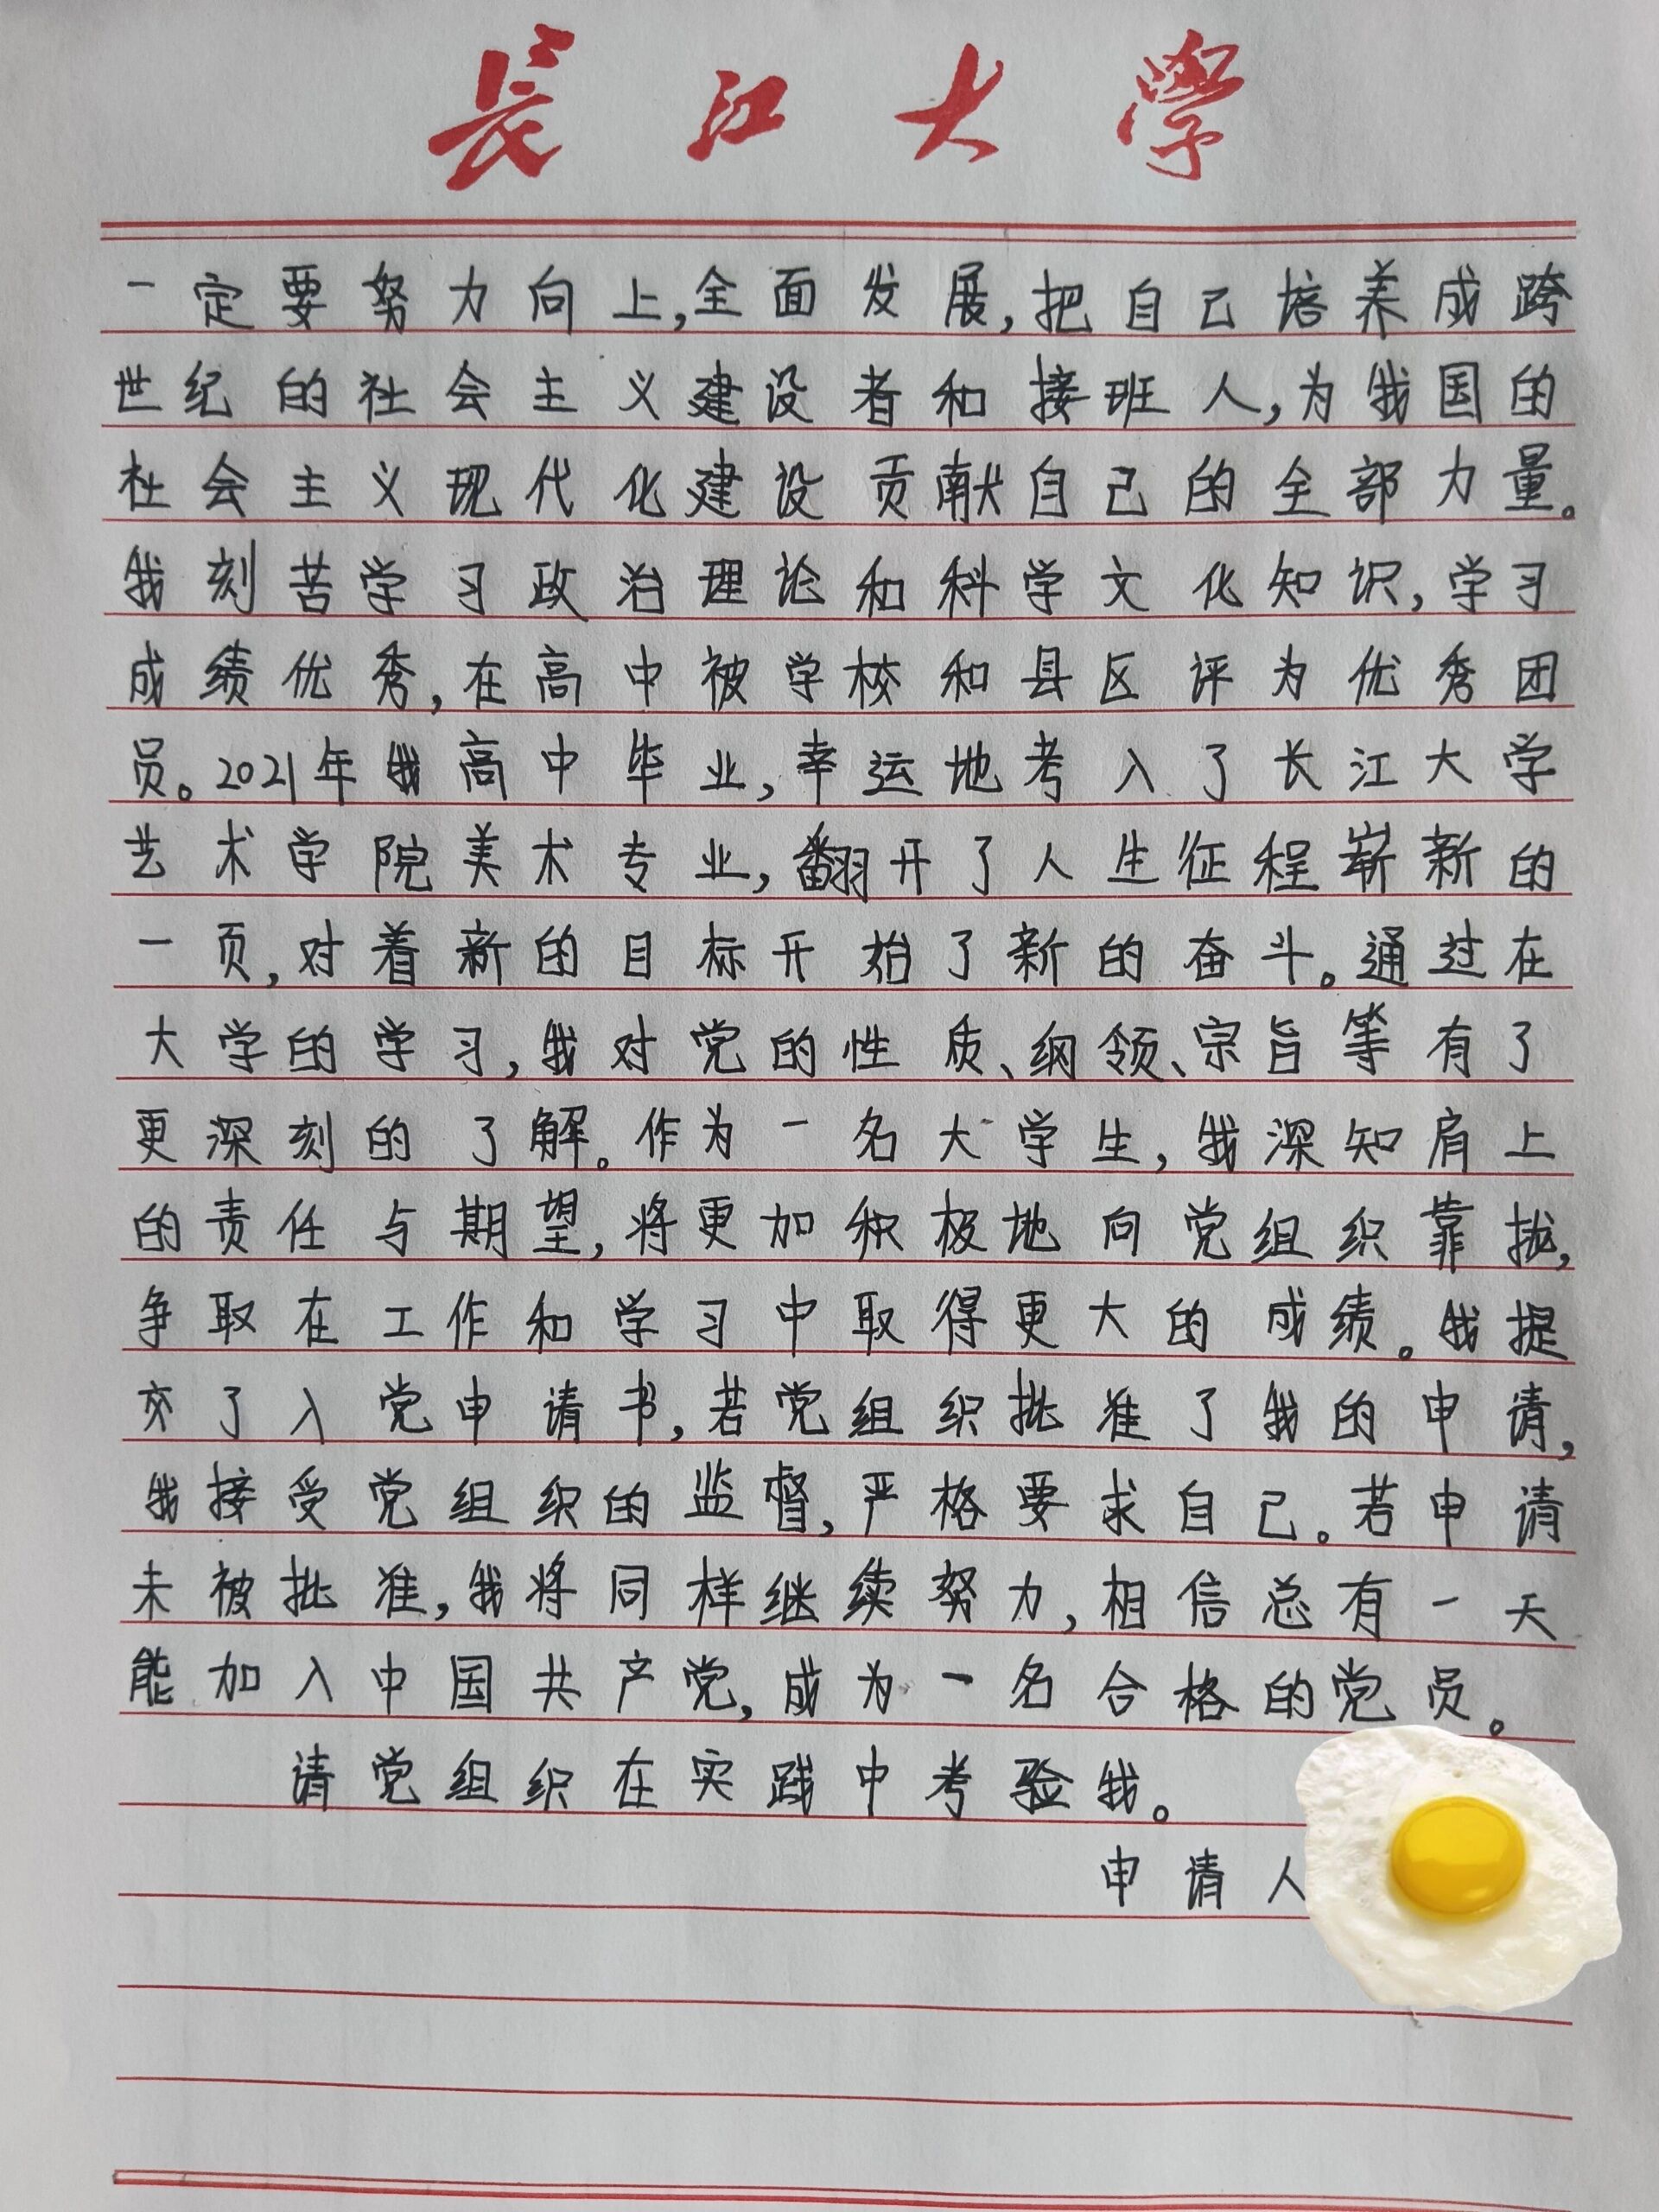 長江大學
一定要努力向上,全面发展,把自己培养成跨
世纪的社会主义建设者和接班人,为我国的
社会主义现代化建设贡献自己的全部力量。
我刻苦学习政治理论和科学文化知识,学习
成绩优秀,在高中被学校和县区评为优秀团
员。2021年我高中毕业,幸运地考入了长江大学
艺术学院美术专业,翻开了人生征程崭新的
一页,对着新的目标开始了新的奋斗。通过在
大学的学习,我对党的性质、纲领、宗旨等有了
更深刻的了解。作为一名大学生,我深知肩上
的责任与期望,将更加积极地向党组织靠拢,
争取在工作和学习中取得更大的成绩。我提
交了入党申请书,若党组织批准了我的申请,
我接受党组织的监督,严格要求自己。若申请
未被批准,我将同样继续努力,相信总有一天
能加入中国共产党,成为一名合格的党员。
请党组织在实践中考验我。
申请人